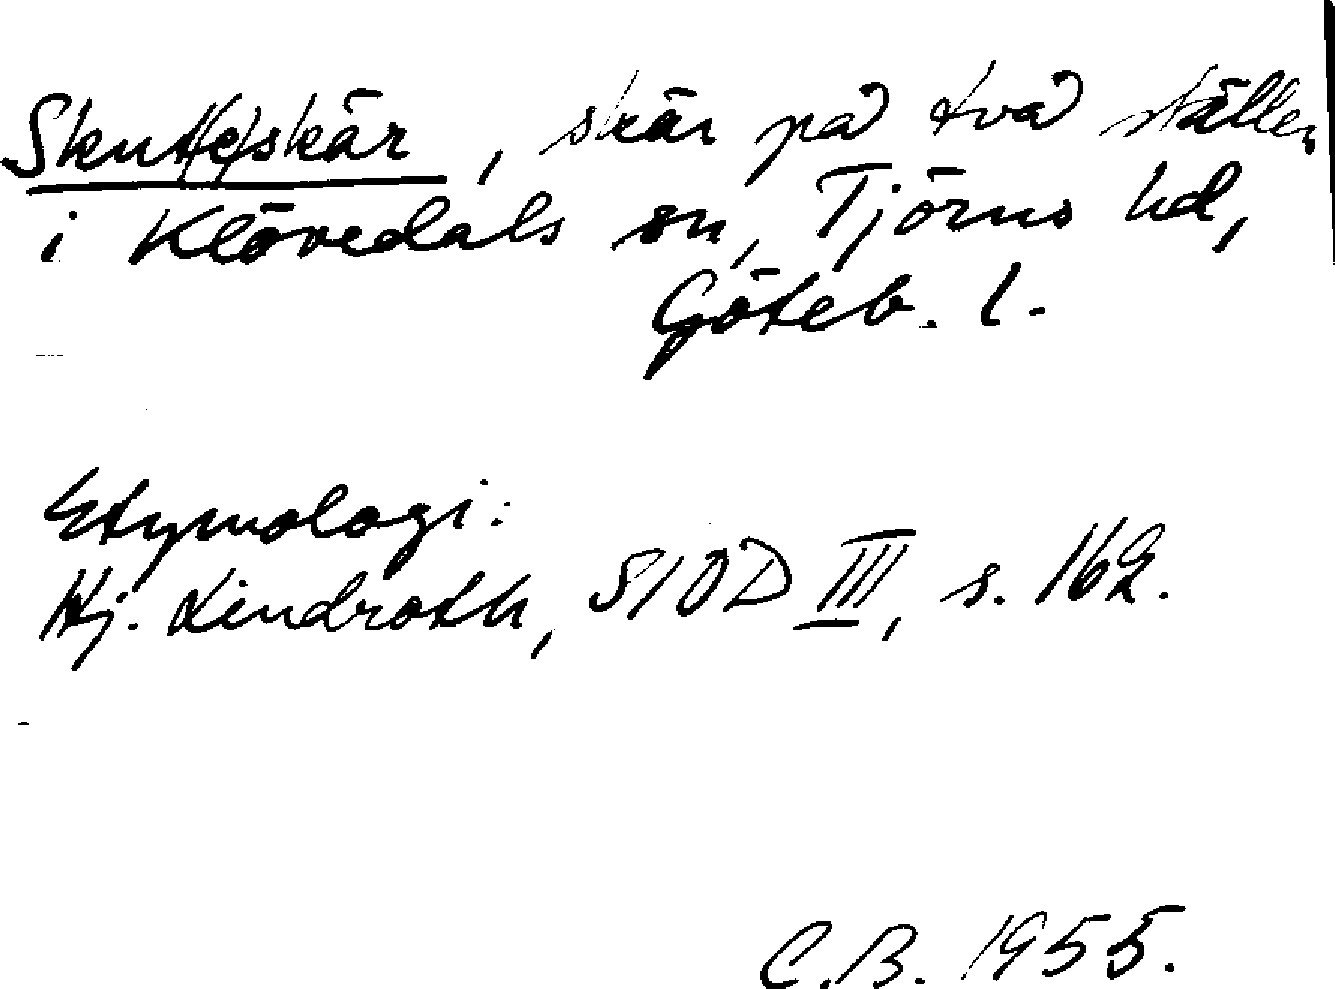 Skutt(e)skär, skär på två ställen
i Klövedals sn, Tjörns hd,
Göteb. l.
Etymologi:
Hj. Lindroth, SIOD III, s. 162.
C.B. 1955.